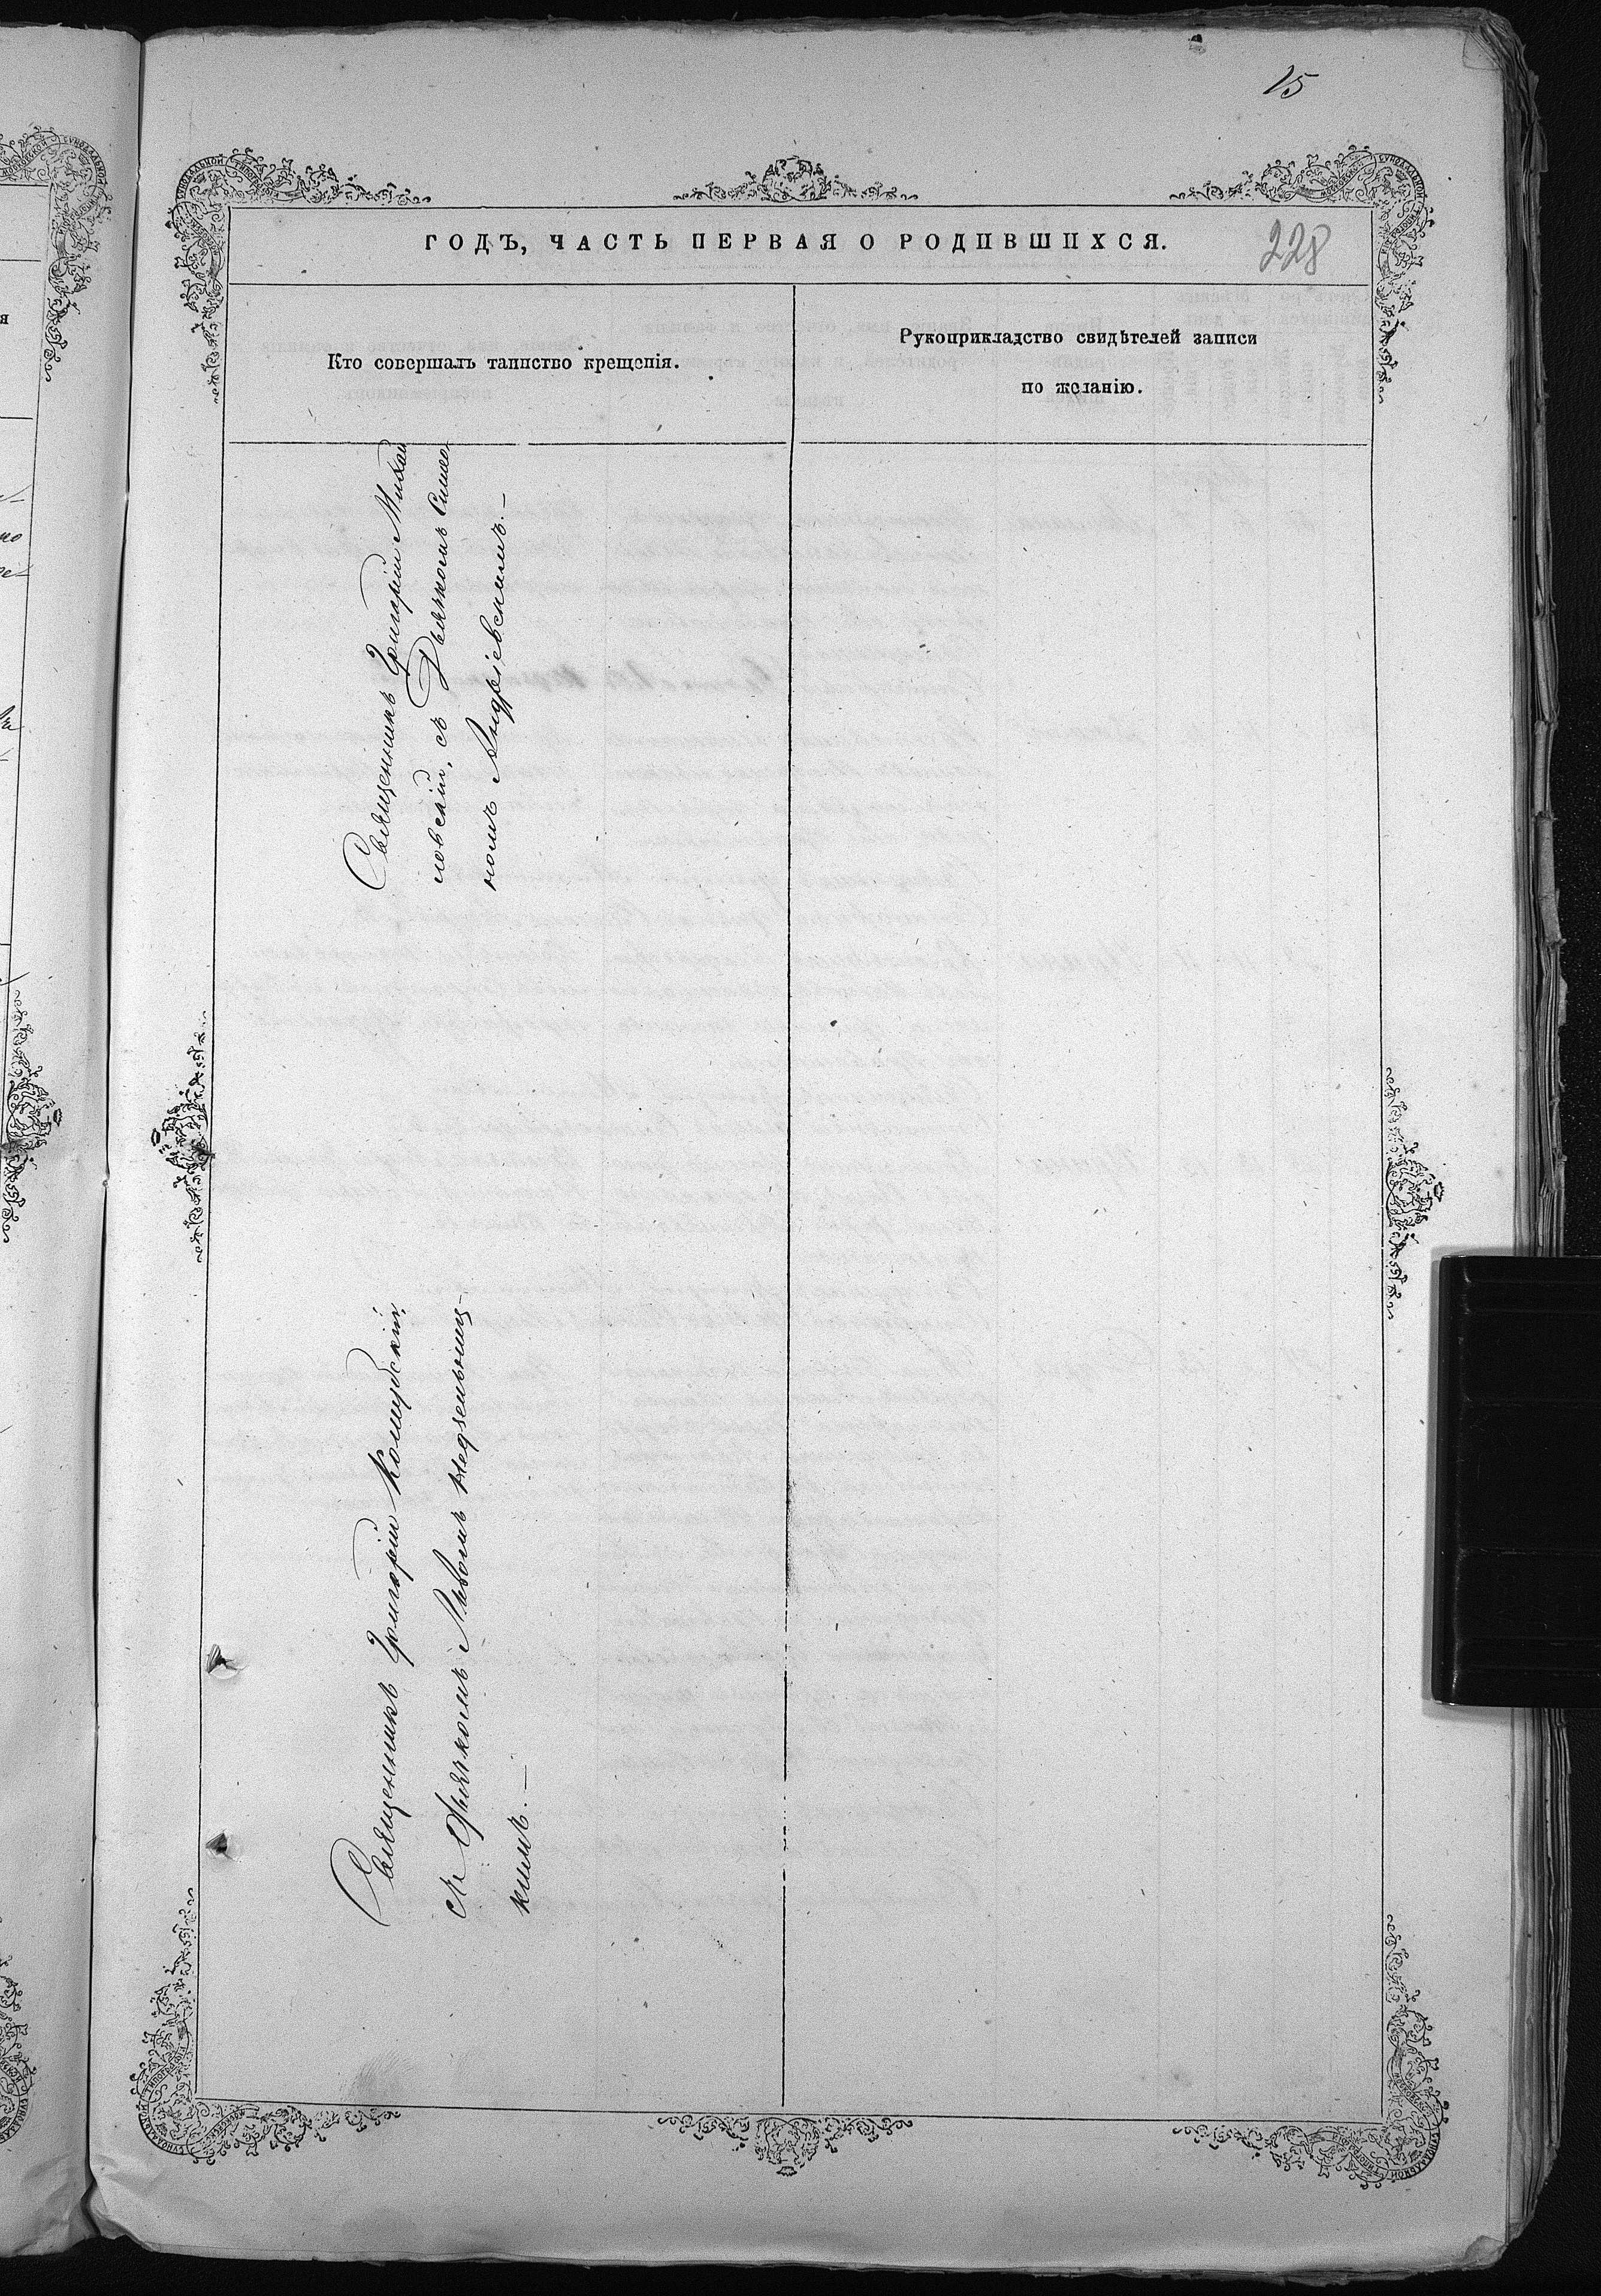 15
ГОДЪ, ЧАСТЬ ПЕРВАЯ О РОДИВШИХСЯ.
228
Кто совершалъ таинство крещенія.
Рукоприкладство свидѣтелей записи
по желанію.
Священникъ Григорій Михай
ловскій, съ Дьячкомъ Симео
номъ Андріевскимъ.—
Священникъ Григорій
съ Дьячкомъ
кимъ.—